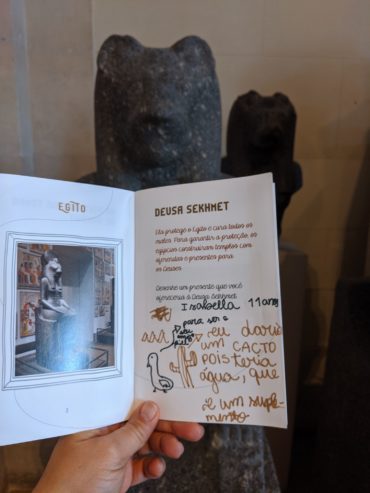 EGITO
2
DEUSA SEKHMET
Ela protege o Egito e cura todos os
males. Para garantir a proteção, os
egípcios construíram templos com
oferendas e presentes para
os Deuses.
Desenhe um presente que você
ofereceria à Deusa Sekhmet.
Isabella 11 anos
para ser o
seu
eu daria
um CACTO
pois teria
água, que
é um suple-
mento